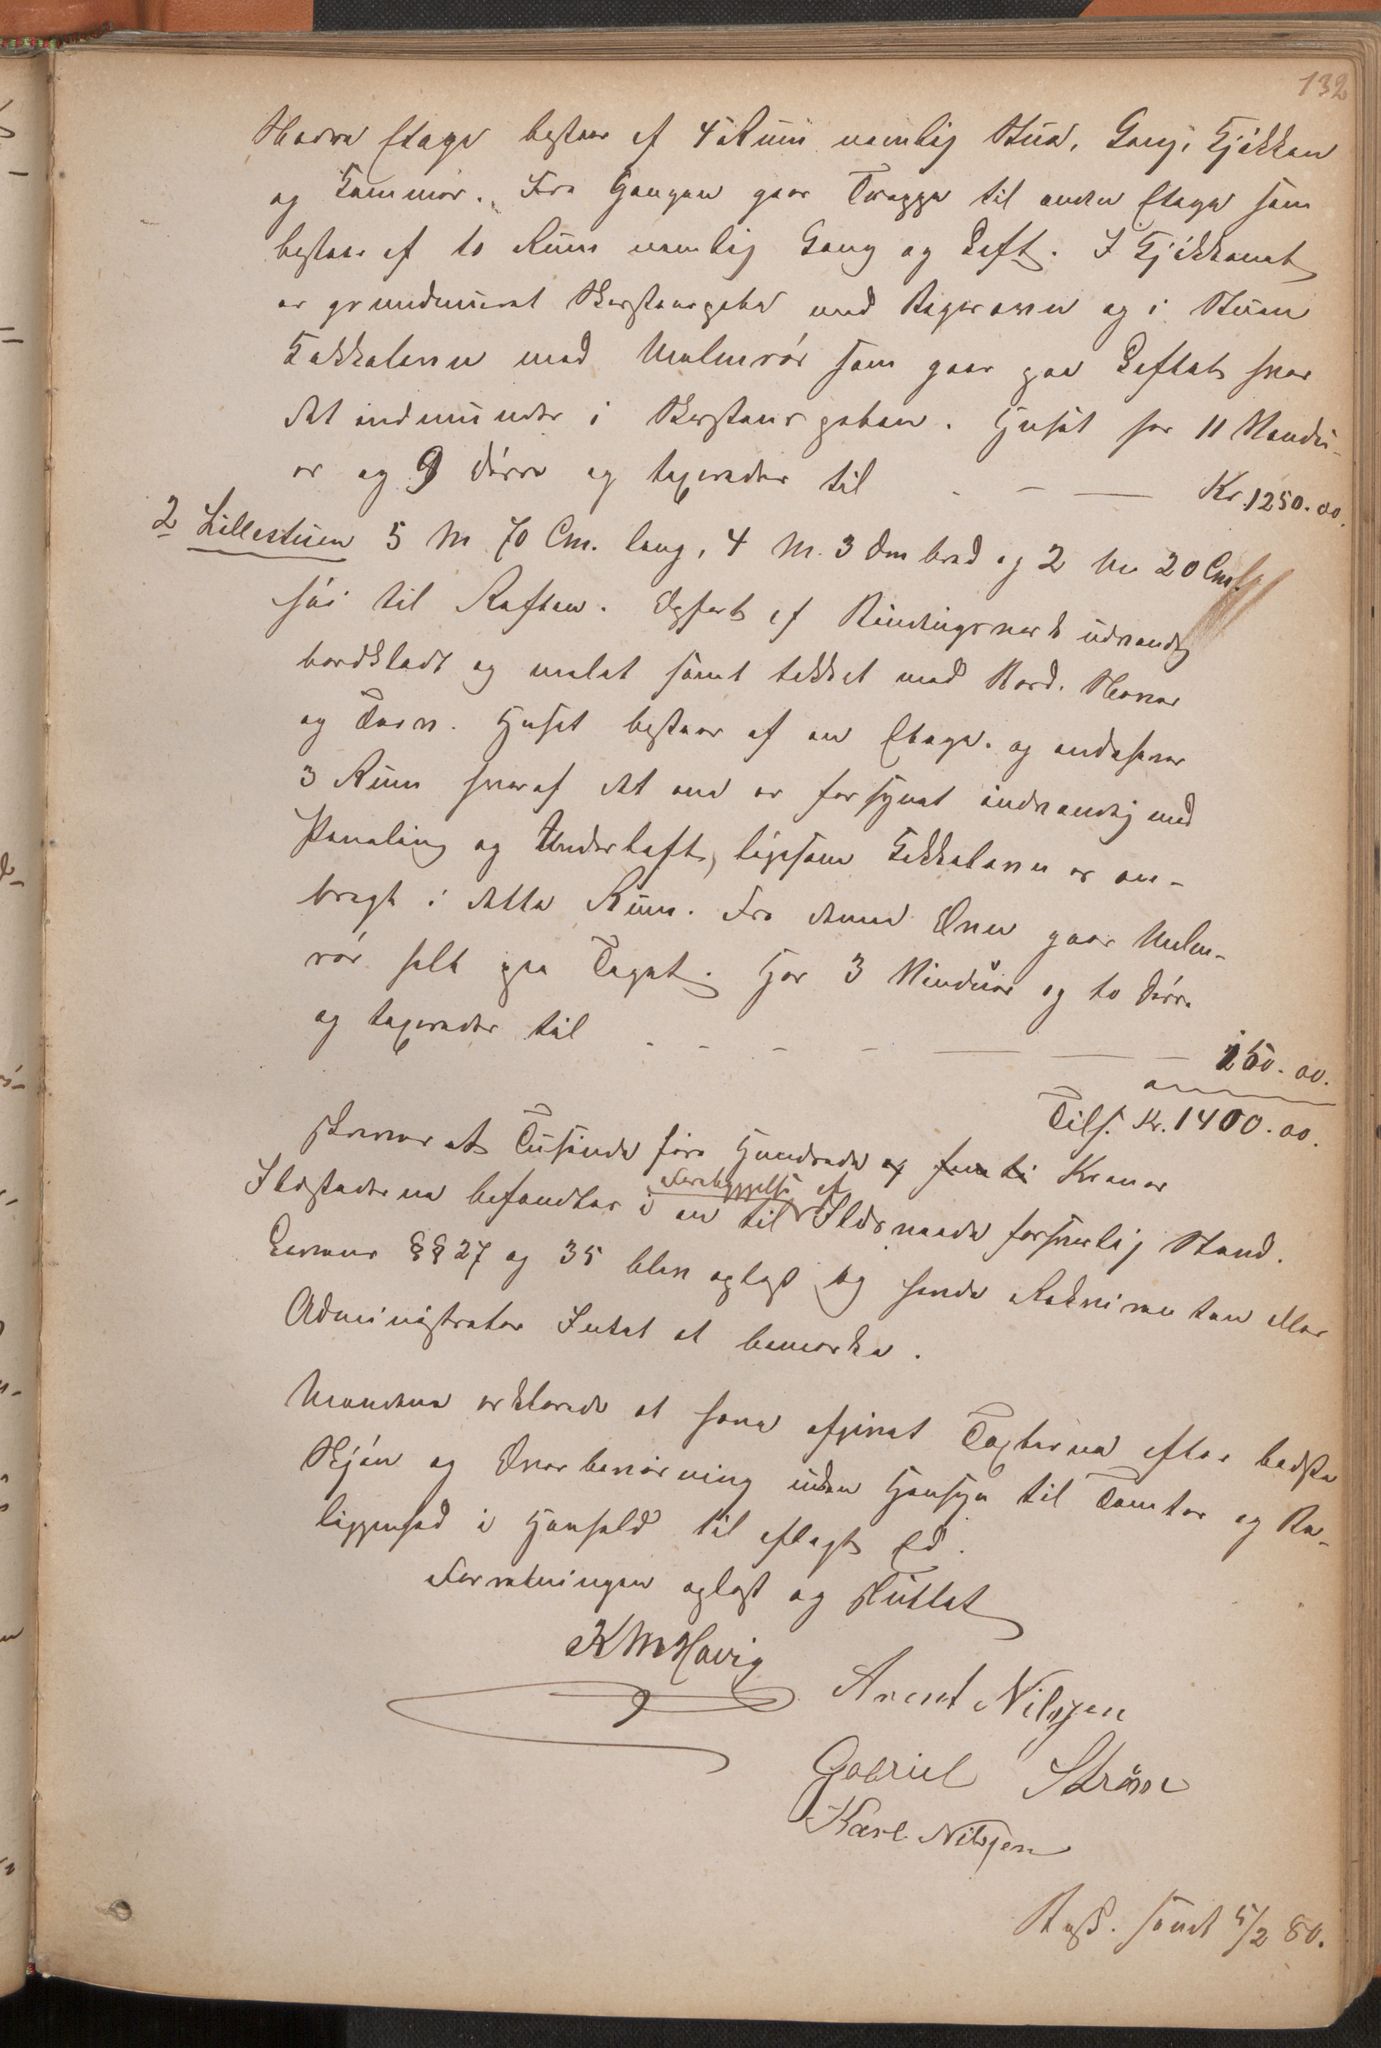 132
Nedre Etage bestaar af 4 Rum nemlig Stue, Gang, Kjøkken
og Kammer. Fra Gangen gaar Trappe til anden Etage som
bestaar af to Rum nemlig Gang og Loft. I Kjøkkenet
er grundmuret Skorstenspibe med Bagerovn og i Stuen
Kakkelovn med Malmrør som gaar paa Loftet hvor
det indmunder i Skorstenspiben. Huset har 11 Vindu-
er og 9 Dørre og taxeredes til - - - Kr. 1250.00.
2 Lillestuen 5 M 70 Cm. lang, 4 M. 3 Dm bred og 2 M 20 Cm.
høi til Raften. Opført af Bindingsverk udvendig
bordklædt og malet samt tækket med Bord. Næver
og Torv. Huset bestaar af en Etage. og indehaver
3 Rum hvoraf det ene er forsynet indvendig med
Paneling og Underloft, ligesom Kakkelovn er an-
bragt i dette Rum. Fra denne Ovn gaar Malm-
rør helt paa Taget. Har 3 Vinduer og to Dørre
og taxeredes til - - - - - - - 150.00.
Tils. Kr. 1400.00.
skriver et Tusinde fire Hundrede og femti Kroner
Ildstederne befandtes i en til Forebyggelse af Ildsvaade forsvarlig Stand.
Lovens §§ 27 og 35 blev oplæst og havde Rekvirenten eller
Administrator Intet at bemærke.
Mændene erklærede at have afgivet Taxterne efter bedste
Skjøn og Overbevisning uden Hensyn til Tomter og Be-
liggenhed i Henhold til aflagt Ed.
Forretningen oplæst og sluttet
K M Havig
Arent Nilssen
Gabriel Strøm
Karl Nilssen
Besk. sendt 5/2 80.